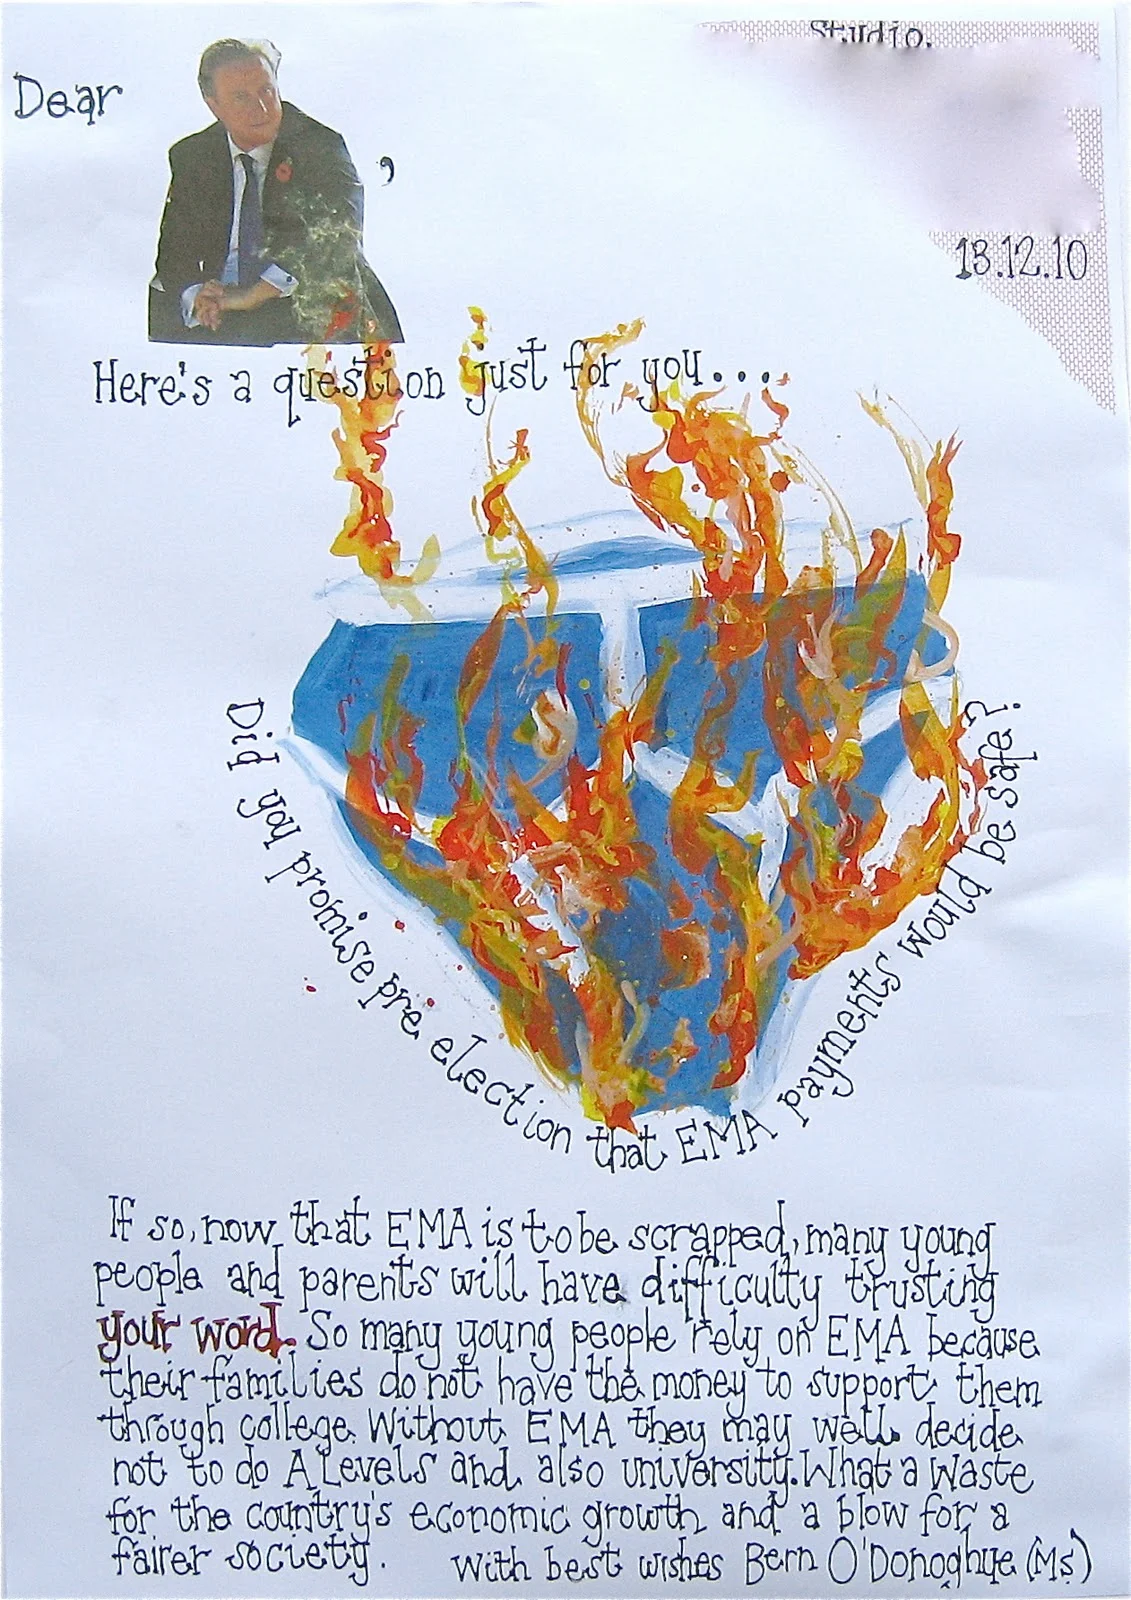 Studio.
Dear ,
13.12.10
Here's a question just for you....
Did you promise pre election that EMA payments would be safe?
If so, now that EMA is to be scrapped, many young
people and parents will have difficulty trusting
your word. So many young people rely on EMA because
their families do not have the money to support them
through college. Without EMA they may well decide
not to do A Levels and also university. What a waste
for the country's economic growth and a blow for a
fairer society. With best wishes Bern O'Donoghue (Ms)